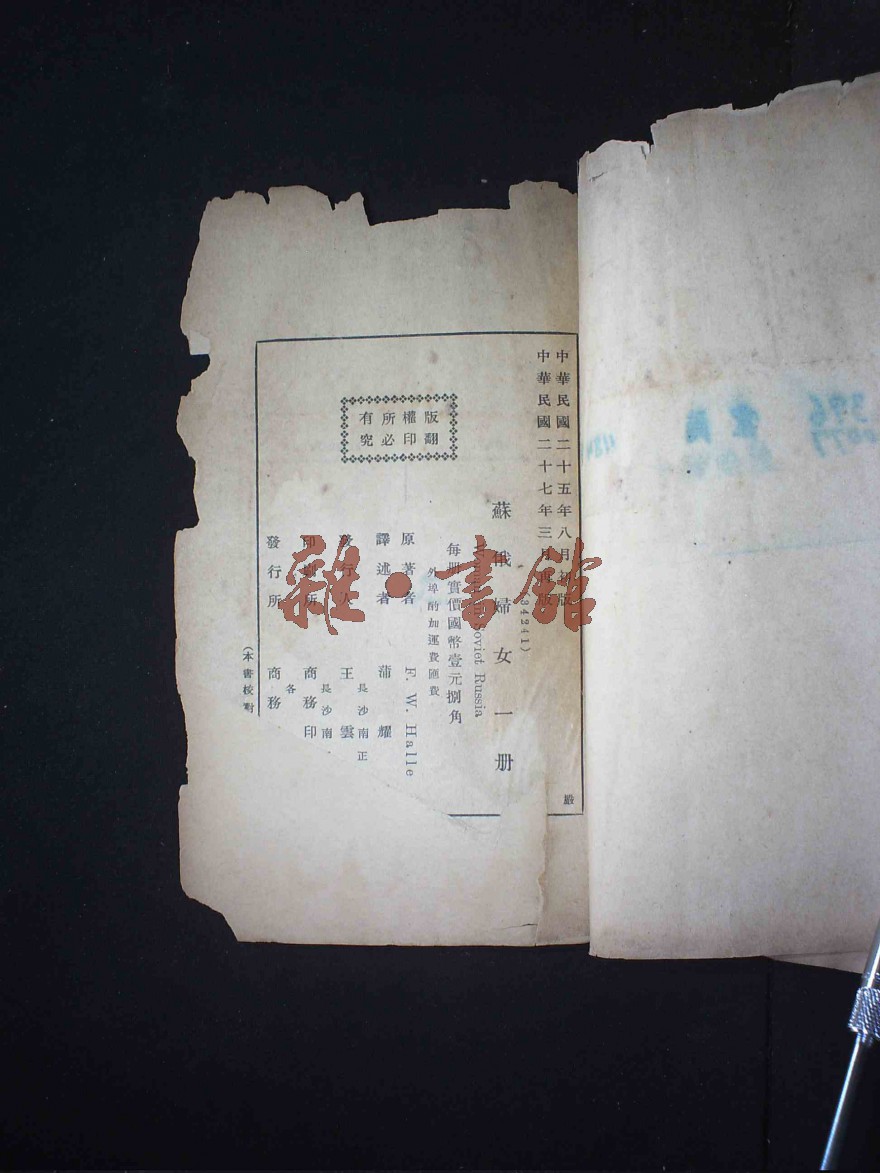 中華民國二十五年八月初版
中華民國二十七年三月再版
殿
34241)
蘇俄婦女一册
Soviet Russia
每册實價國幣壹元捌角
外埠酌加運費匯費
版權所有
翻印必究
原著者 F. W. Halle
譯述者 蒲耀
發行人 王雲
長沙南正
印刷所 商務印
長沙南
發行所 商務
各
(本書校對
雜·書館